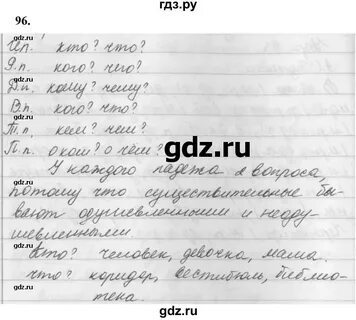 gdz.ru
96.
И.п. кто? что?
Р.п. кого? чего?
Д.п. кому? чему?
В.п. кого? что?
Т.п. кем? чем?
П.п. о ком? о чём?
gdz.ru
У каждого падежа 2 вопроса,
потому что существительные бы-
вают одушевленными и неоду-
шевленными.
Кто? человек, девочка, мама.
что? коридор, вестибюль, библио-
тека.
gdz.ru